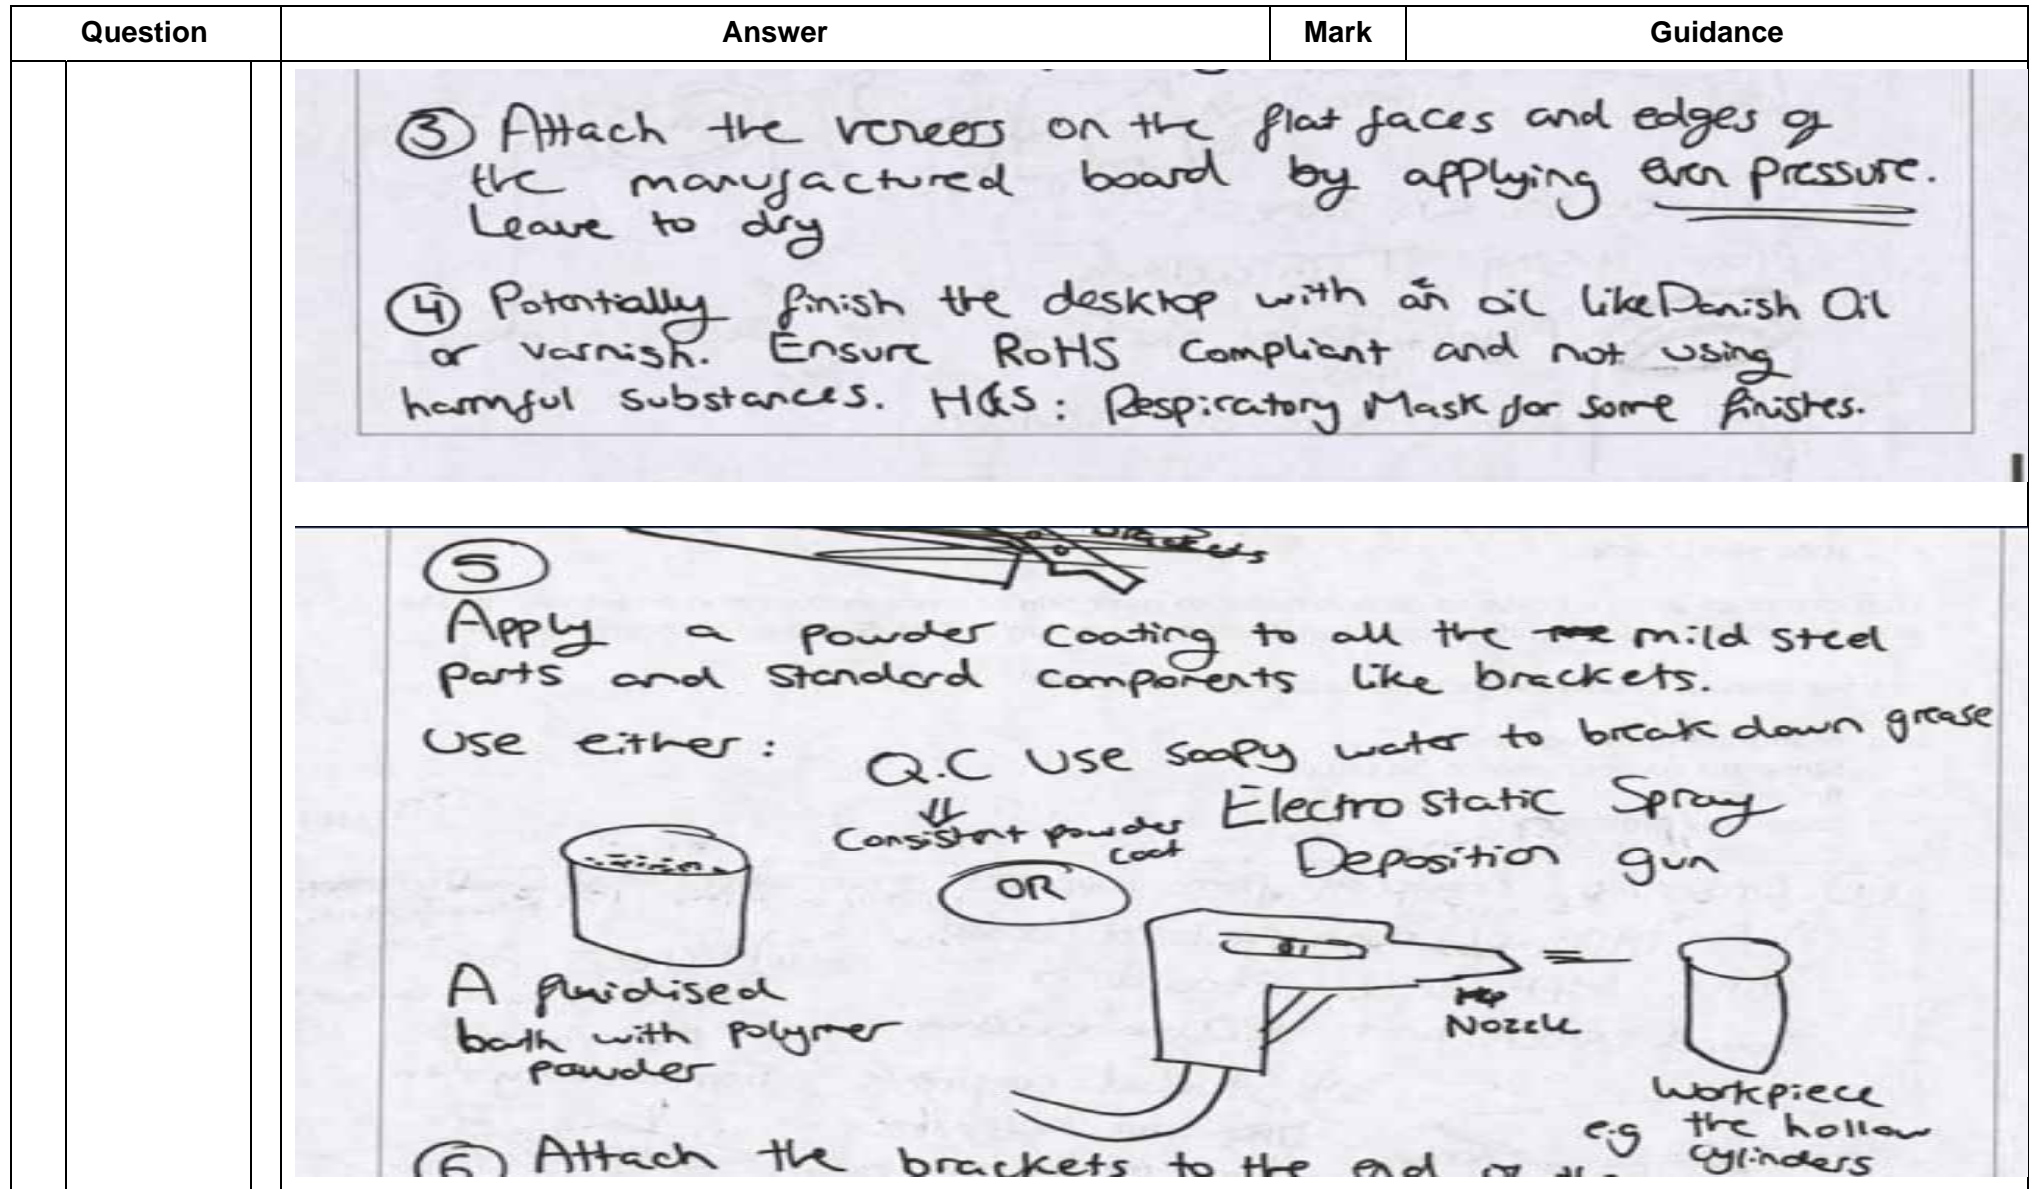 Question Answer Mark Guidance
③ Attach the veneers on the flat faces and edges of
the manufactured board by applying even pressure.
Leave to dry
④ Potentially finish the desktop with an oil like Danish Oil
or varnish. Ensure RoHS compliant and not using
harmful substances. H&S: Respiratory Mask for some finishes.
brackets
⑤
Apply a powder coating to all the mild steel
parts and standard components like brackets.
Use either:
Q.C Use soapy water to break down grease
⇓
Consistent powder
coat
Electrostatic Spray
Deposition gun
OR
A fluidised
bath with polymer
powder
Nozzle
Workpiece
e.g the hollow
cylinders
⑥ Attach the brackets to the end of the